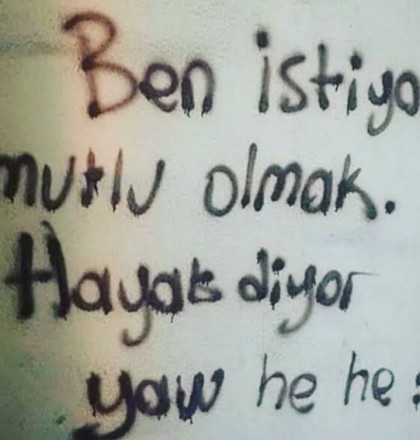 Ben istiyo
mutlu olmak.
Hayat diyor
yaw he he :